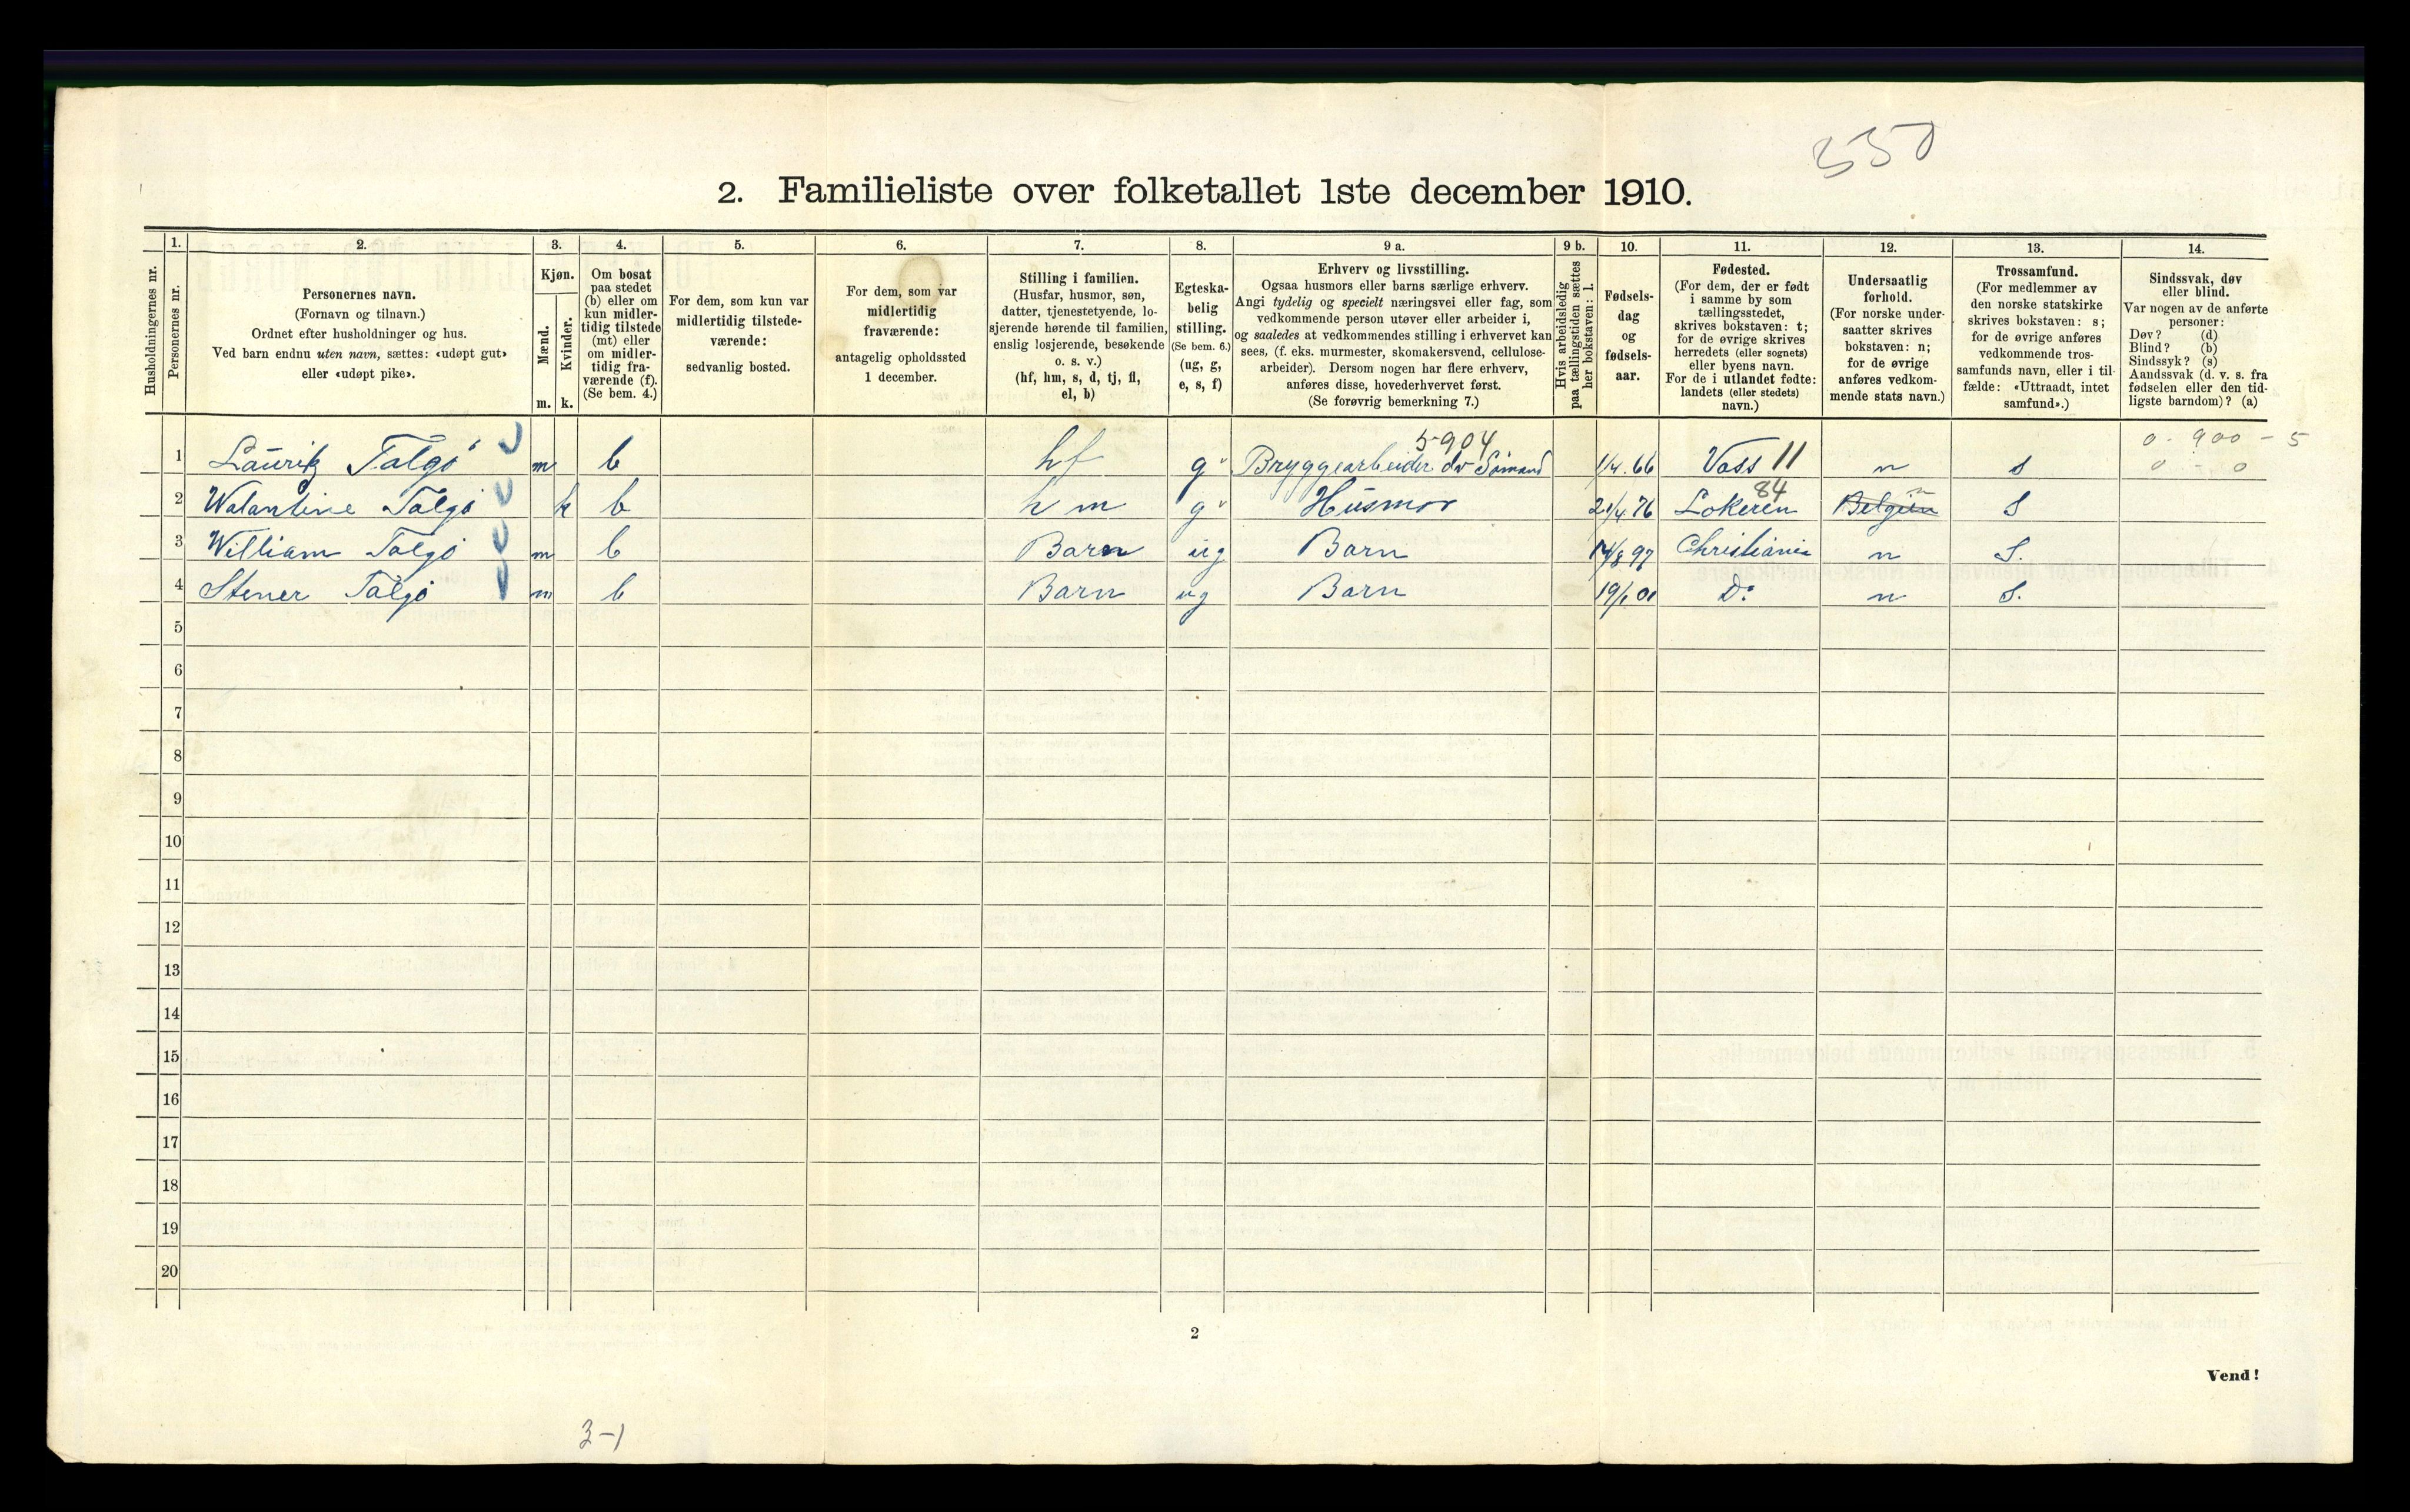 350
2. Familieliste over folketallet 1ste december 1910.
Husholdningernes nr.
1.
Personernes nr.
2.
Personernes navn.
(Fornavn og tilnavn.)
Ordnet efter husholdninger og hus.
Ved barn endnu uten navn, sættes: «udøpt gut»
eller «udøpt pike».
3.
Kjøn.
Mænd.
Kvinder.
m. k.
4.
Om bosat
paa stedet
(b) eller om
kun midler-
tidig tilstede
(mt) eller
om midler-
tidig fra-
værende (f).
(Se bem. 4.)
5.
For dem, som kun var
midlertidig tilstede-
værende:
sedvanlig bosted.
6.
For dem, som var
midlertidig
fraværende:
antagelig opholdssted
1 december.
7.
Stilling i familien.
(Husfar, husmor, søn,
datter, tjenestetyende, lo-
sjerende hørende til familien,
enslig losjerende, besøkende
o. s. v.)
(hf, hm, s, d, tj, fl,
el, b)
8.
Egteska-
belig
stilling.
(Se bem. 6.)
(ug, g,
e, s, f)
9 a.
Erhverv og livsstilling.
Ogsaa husmors eller barns særlige erhverv.
Angi tydelig og specielt næringsvei eller fag, som
vedkommende person utøver eller arbeider i,
og saaledes at vedkommendes stilling i erhvervet kan
sees, (f. eks. murmester, skomakersvend, cellulose-
arbeider). Dersom nogen har flere erhverv,
anføres disse, hovederhvervet først.
(Se forøvrig bemerkning 7.)
9 b.
Hvis arbeidsledig
paa tællingstiden sættes
her bokstaven: l.
10.
Fødsels-
dag
og
fødsels-
aar.
11.
Fødested.
(For dem, der er født
i samme by som
tællingsstedet,
skrives bokstaven: t;
for de øvrige skrives
herredets (eller sognets)
eller byens navn.
For de i utlandet fødte:
landets (eller stedets)
navn.)
12.
Undersaatlig
forhold.
(For norske under-
saatter skrives
bokstaven: n;
for de øvrige
anføres vedkom-
mende stats navn.)
13.
Trossamfund.
(For medlemmer av
den norske statskirke
skrives bokstaven: s;
for de øvrige anføres
vedkommende tros-
samfunds navn, eller i til-
fælde: «Uttraadt, intet
samfund».)
14.
Sindssvak, døv
eller blind.
Var nogen av de anførte
personer:
Døv? (d)
Blind? (b)
Sindssyk? (s)
Aandssvak (d. v. s. fra
fødselen eller den tid-
ligste barndom)? (a)
5-904 0. 900 - 5
1 Lauritz Talgø m b hf g Bryggearbeider dv Sømand 1/4.66 Voss 11 n s 0 - 0
84 n
2 Walantine Talgø k b hm g Husmor 21/4 76 Lokeren Belgien S
3 William Talgø m b Barn ug Barn 14/8 97 Christiania n S.
4 Stener Talgø m b Barn ug Barn 19/1 01 Do n S.
5
6
7
8
9
10
11
12
13
14
15
16
17
18
19
20
2
Vend!
3-1